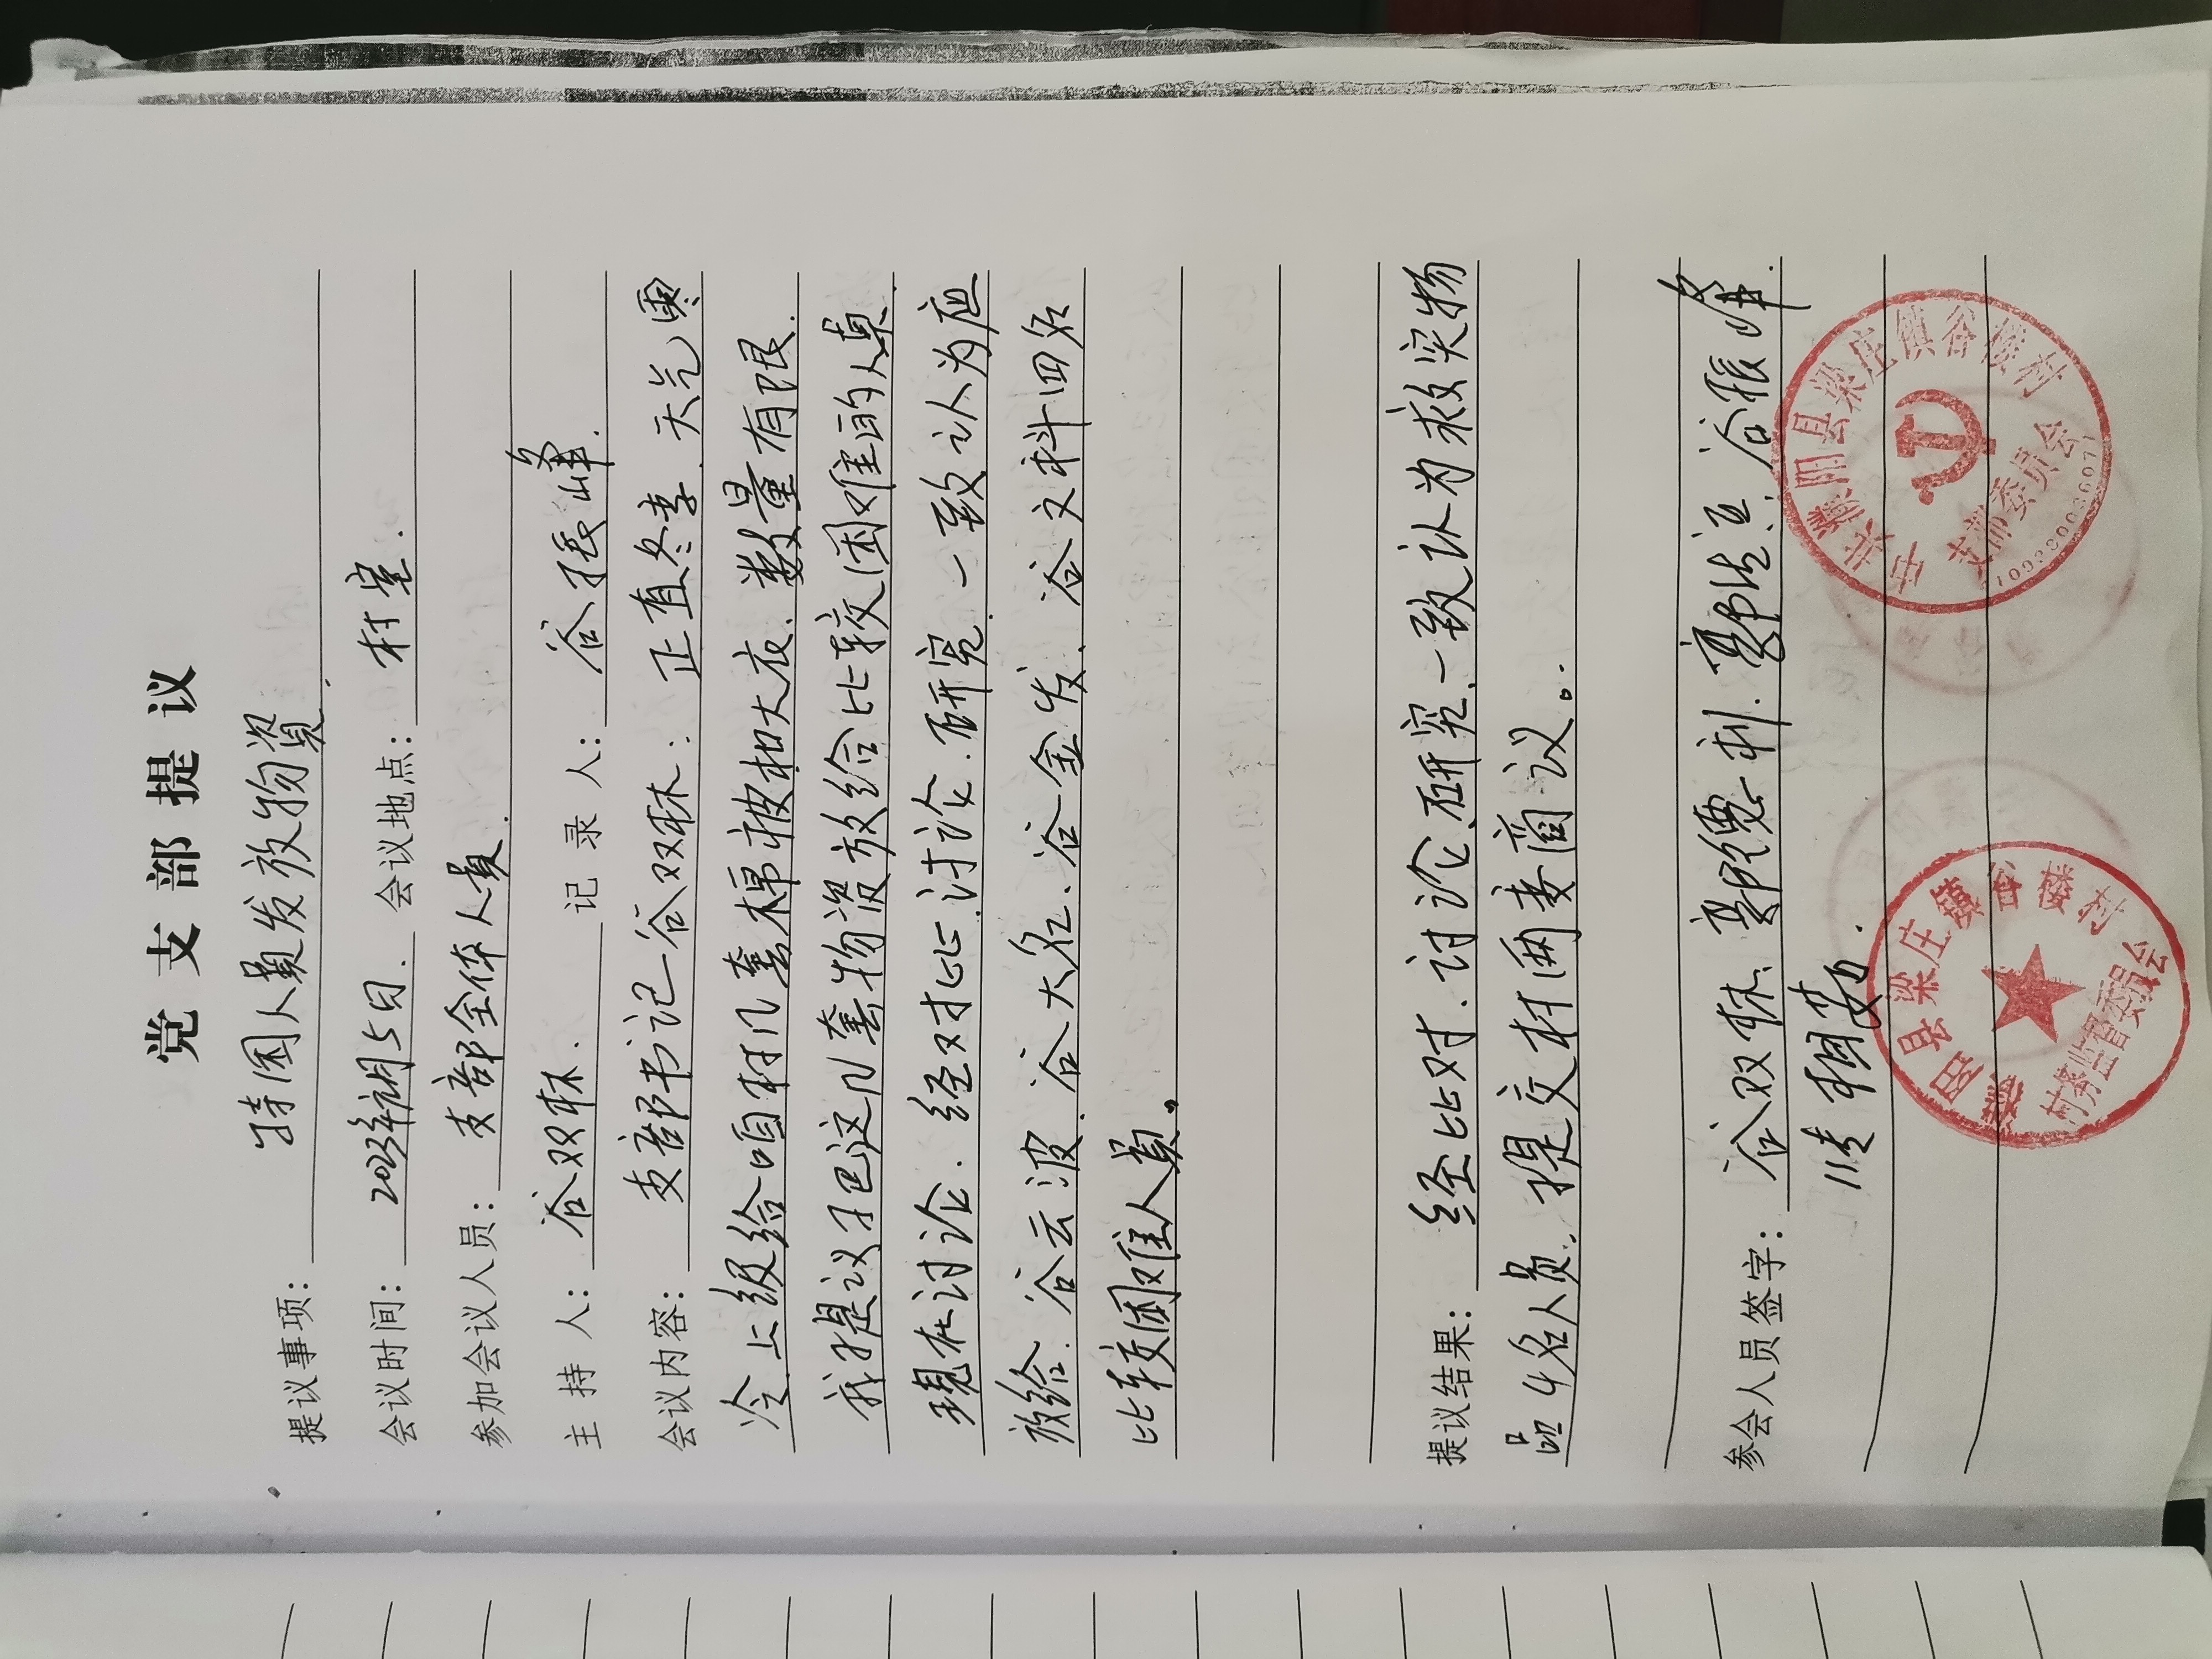 党支部提议
提议事项： 特困人员发放物資.
会议时间： 2023年元月5日. 会议地点： 村室.
参加会议人员： 支部全体人员.
主持人： 谷双林. 记录人： 谷振峰.
会议内容： 支部书记谷双林：正直冬季.天气寒
冷.上级给咱村几套棉被和大衣.数量有限.
我提议把这几套物资放给比较困难的人员.
现在讨论.经对比.讨论.研究.一致认为应
放给.谷云波.谷大名.谷金发.谷文科四名
比较困难人员。
提议结果： 经比对.讨论.研究.一致认为救实物
品4名人员.提交村两委商议。.
参会人员签字： 谷双林.郭德利.郭 兵.谷振峰.
相茹.
濮阳县梁庄镇谷楼村
村务监督委员会
中共濮阳县梁庄镇谷楼村
支部委员会